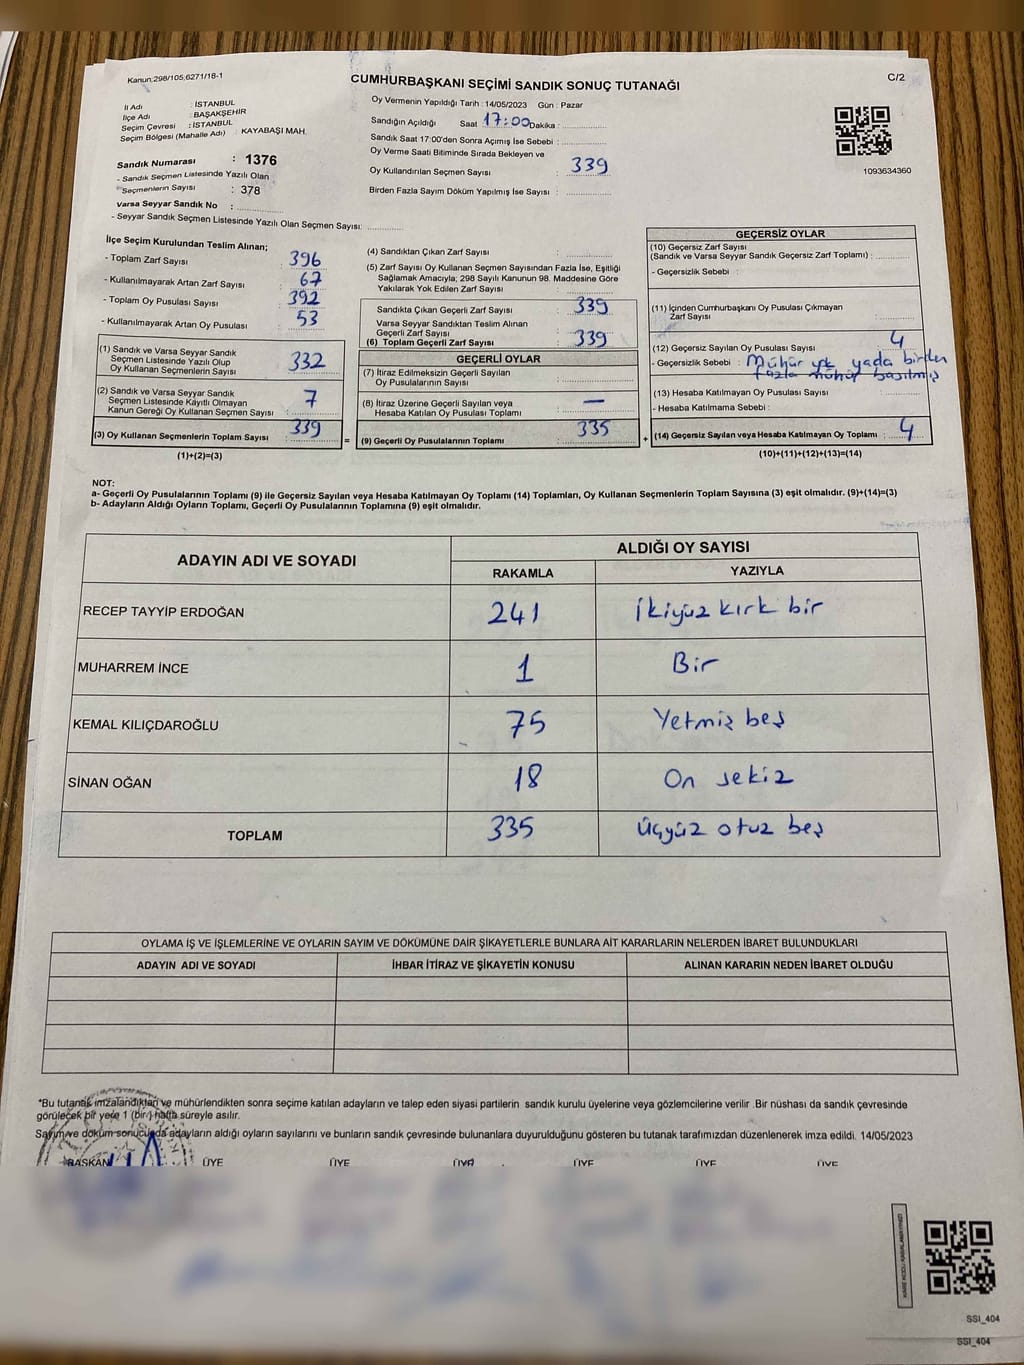 Kanun:298/105,6271/18-1
CUMHURBAŞKANI SEÇİMİ SANDIK SONUÇ TUTANAĞI
C/2
İl Adı : İSTANBUL
İlçe Adı : BAŞAKŞEHİR
Seçim Çevresi : İSTANBUL
Seçim Bölgesi (Mahalle Adı) : KAYABAŞI MAH.
Sandık Numarası : 1376
- Sandık Seçmen Listesinde Yazılı Olan
Seçmenlerin Sayısı : 378
Varsa Seyyar Sandık No :
- Seyyar Sandık Seçmen Listesinde Yazılı Olan Seçmen Sayısı:
Oy Vermenin Yapıldığı Tarih : 14/05/2023 Gün : Pazar
Sandığın Açıldığı Saat 17:00 Dakika :
Sandık Saat 17:00'den Sonra Açımış İse Sebebi :
Oy Verme Saati Bitiminde Sırada Bekleyen ve
Oy Kullandırılan Seçmen Sayısı : 339
Birden Fazla Sayım Döküm Yapılmış İse Sayısı :
1093634360
İlçe Seçim Kurulundan Teslim Alınan;
- Toplam Zarf Sayısı : 396
- Kullanılmayarak Artan Zarf Sayısı : 67
- Toplam Oy Pusulası Sayısı : 392
- Kullanılmayarak Artan Oy Pusulası : 53
(1) Sandık ve Varsa Seyyar Sandık
Seçmen Listesinde Yazılı Olup
Oy Kullanan Seçmenlerin Sayısı : 332
(2) Sandık ve Varsa Seyyar Sandık
Seçmen Listesinde Kayıtlı Olmayan
Kanun Gereği Oy Kullanan Seçmen Sayısı : 7
(3) Oy Kullanan Seçmenlerin Toplam Sayısı : 339
(1)+(2)=(3)
=
(4) Sandıktan Çıkan Zarf Sayısı :
(5) Zarf Sayısı Oy Kullanan Seçmen Sayısından Fazla İse, Eşitliği
Sağlamak Amacıyla; 298 Sayılı Kanunun 98. Maddesine Göre
Yakılarak Yok Edilen Zarf Sayısı :
Sandıkta Çıkan Geçerli Zarf Sayısı : 339
Varsa Seyyar Sandıktan Teslim Alınan
Geçerli Zarf Sayısı :
(6) Toplam Geçerli Zarf Sayısı : 339
GEÇERLİ OYLAR
(7) İtiraz Edilmeksizin Geçerli Sayılan
Oy Pusulalarının Sayısı :
(8) İtiraz Üzerine Geçerli Sayılan veya
Hesaba Katılan Oy Pusulası Toplamı : —
(9) Geçerli Oy Pusulalarının Toplamı : 335
+
GEÇERSİZ OYLAR
(10) Geçersiz Zarf Sayısı
(Sandık ve Varsa Seyyar Sandık Geçersiz Zarf Toplamı) :
- Geçersizlik Sebebi :
(11) İçinden Cumhurbaşkanı Oy Pusulası Çıkmayan
Zarf Sayısı :
(12) Geçersiz Sayılan Oy Pusulası Sayısı : 4
- Geçersizlik Sebebi : Mühür yok yada birden
fazla mühür basılmış
(13) Hesaba Katılmayan Oy Pusulası Sayısı :
- Hesaba Katılmama Sebebi :
(14) Geçersiz Sayılan veya Hesaba Katılmayan Oy Toplamı : 4
(10)+(11)+(12)+(13)=(14)
NOT:
a- Geçerli Oy Pusulalarının Toplamı (9) ile Geçersiz Sayılan veya Hesaba Katılmayan Oy Toplamı (14) Toplamları, Oy Kullanan Seçmenlerin Toplam Sayısına (3) eşit olmalıdır. (9)+(14)=(3)
b- Adayların Aldığı Oyların Toplamı, Geçerli Oy Pusulalarının Toplamına (9) eşit olmalıdır.
ADAYIN ADI VE SOYADI
ALDIĞI OY SAYISI
RAKAMLA YAZIYLA
RECEP TAYYİP ERDOĞAN 241 İkiyüz kırk bir
MUHARREM İNCE 1 Bir
KEMAL KILIÇDAROĞLU 75 Yetmiş beş
SİNAN OĞAN 18 On sekiz
TOPLAM 335 Üçyüz otuz beş
OYLAMA İŞ VE İŞLEMLERİNE VE OYLARIN SAYIM VE DÖKÜMÜNE DAİR ŞİKAYETLERLE BUNLARA AİT KARARLARIN NELERDEN İBARET BULUNDUKLARI
ADAYIN ADI VE SOYADI İHBAR İTİRAZ VE ŞİKAYETİN KONUSU ALINAN KARARIN NEDEN İBARET OLDUĞU
*Bu tutanak imzalandıktan ve mühürlendikten sonra seçime katılan adayların ve talep eden siyasi partilerin sandık kurulu üyelerine veya gözlemcilerine verilir .Bir nüshası da sandık çevresinde
görülecek bir yere 1 (bir ) hafta süreyle asılır.
Sayım ve döküm sonucunda adayların aldığı oyların sayılarını ve bunların sandık çevresinde bulunanlara duyurulduğunu gösteren bu tutanak tarafımızdan düzenlenerek imza edildi. 14/05/2023
BAŞKAN ÜYE ÜYE ÜYE ÜYE ÜYE ÜYE
SSI_404
SSI_404